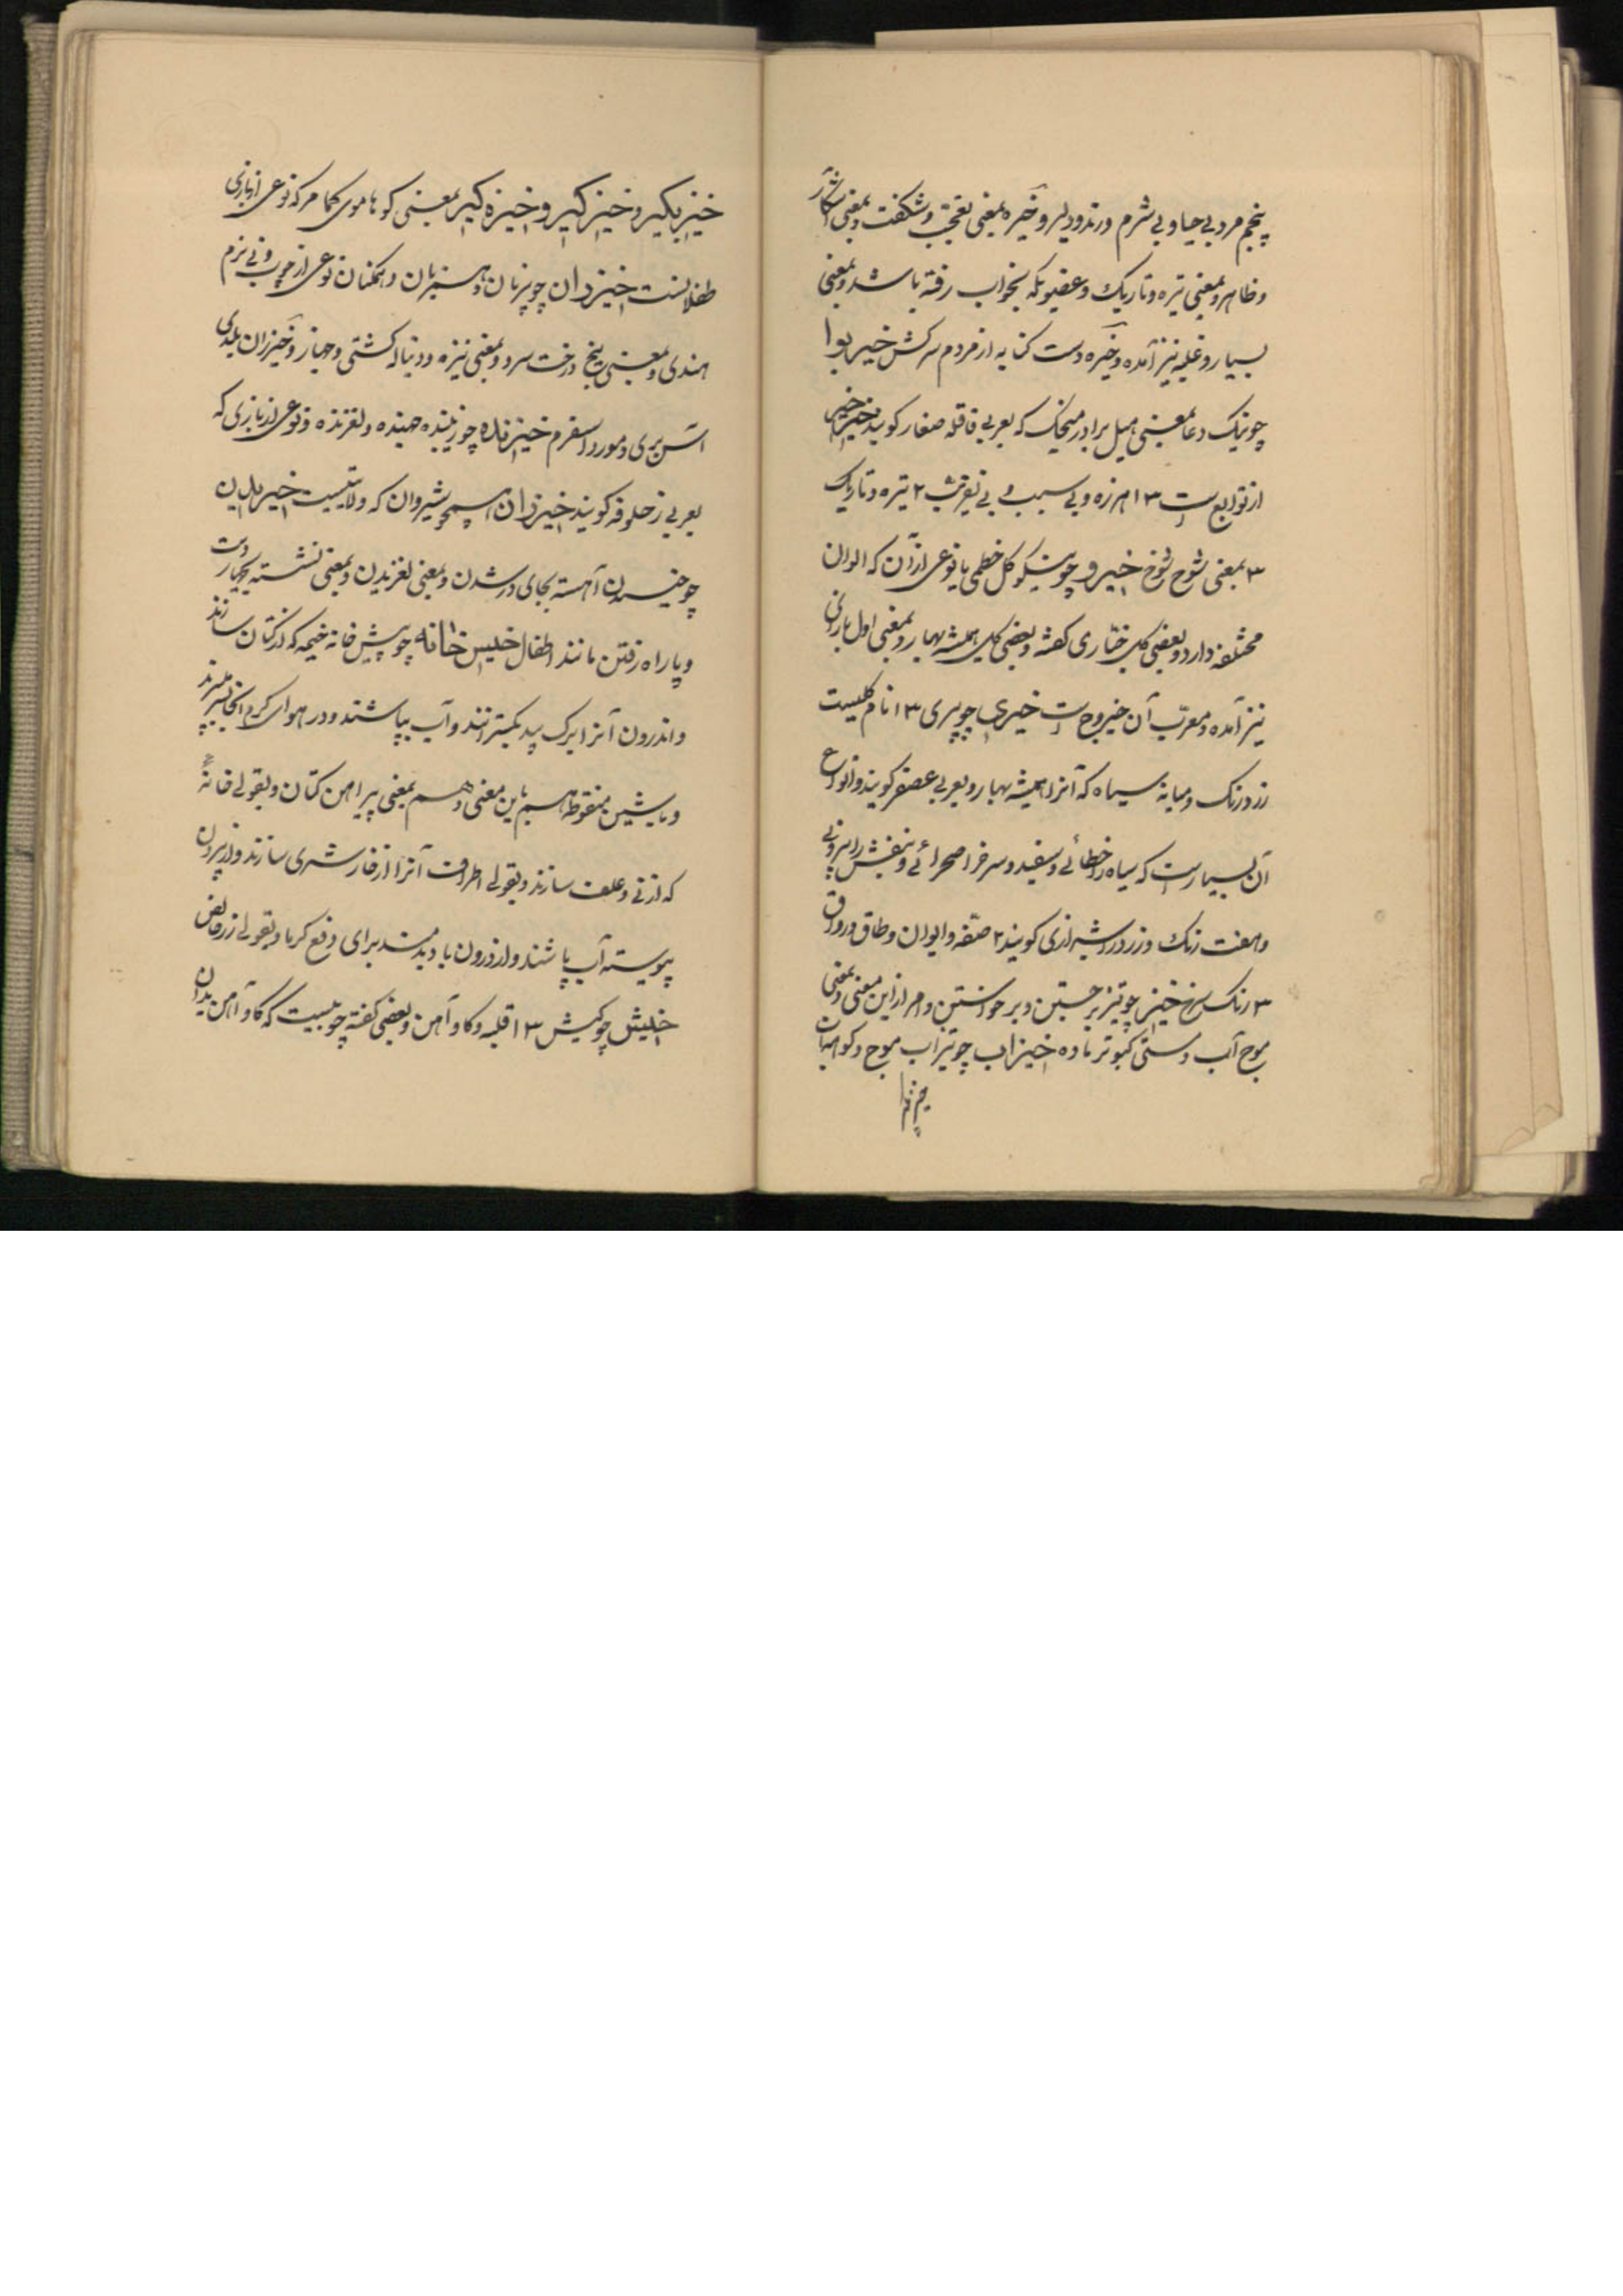 پنجم مرد بی حیا و بی شرم و رند و دلیر و خیره بمعنی تعجب و شکفت و بمعنی آشکار
و ظاهر و بمعنی تیره و تاریک و عضویکه بخواب رفته باشد و بمعنی
بسیار و غلبه نیز آمده و خیره دست کنایه از مردم سرکش خیربوا
چو نیک دعا بمعنی هیل برادر میخک که بعربی قاقله صغار کویند خیر خیر
از توابع ست ۱۳ هرزه و بی سبب و بی تقریب ۲ تیره و تاریک
۳ بمعنی شوخ شوخ خیرو چو نیکو کل خطمی یا نوعی از آن که الوان
مختلفه دارد و بعضی کل خبازی کفته و بعضی کل همیشه بهار و بمعنی اول
نیز آمده و معرب آن خیروج ست خیری چو پیری ۱۳ نام کلیست
زرد رنک و میانه سیاه که آنرا همیشه بهار و بعربی عصفر کویند و انواع
آن بسیارست که سیاه را خطائی و سفید و سرخ را صحرائی و بنفش را میرونی
و هفت رنک و زرد را شیرازی کویند ۲ صفه و ایوان و طاق و رواق
۳ رنک سرخ خیز چو تیز برجستن و برخواستن و امر از این معنی و بمعنی
موج آب و مستی کبوتر ماده خیزاب چو تیزاب موج و کوهه آب
خیز بکیر و خیز کیر و خیزه کیر بمعنی کو هاموی کجا مر که نوعی از بازی
طفلانست خیزران چو پرنان و هسیرمان و همکنان نوعی از چوب و نی نرم
هندی و بمعنی بیخ درخت سرو و بمعنی نیزه و دنباله کشتی و جهاز و خیزران بلدی
آتش بری و مورد اسفرم خیزنده چو زیبنده جهنده و لغزنده و نوعی از بازی که
بعربی زحلوفه کویند خیزران اسم شیروان که ولایتیست خیزیدن
چو خیسیدن آهسته بجای در شدن و بمعنی لغزیدن و بمعنی نشسته بچهار دست
و پا راه رفتن مانند اطفال خیس خانه چو پیش خانه خیمه که از کتان سازند
و اندرون آنرا برک بید بکسترانند و آب بپاشند و در هوای کرم آنجا بسر برند
و با شین منقوطه هم باین معنی و هم بمعنی پیراهن کتان و بقولی خانه
که از نی و علف سازند و بقولی اطراف آنرا از خار شتری سازند و از بیرون
پیوسته آب پاشند و از درون باد بدمند برای دفع کرما و بقولی
خیش چو کیش ۱۳ قلبه و کاو آهن و بعضی کفته چوبیست که کاو آهن بدان